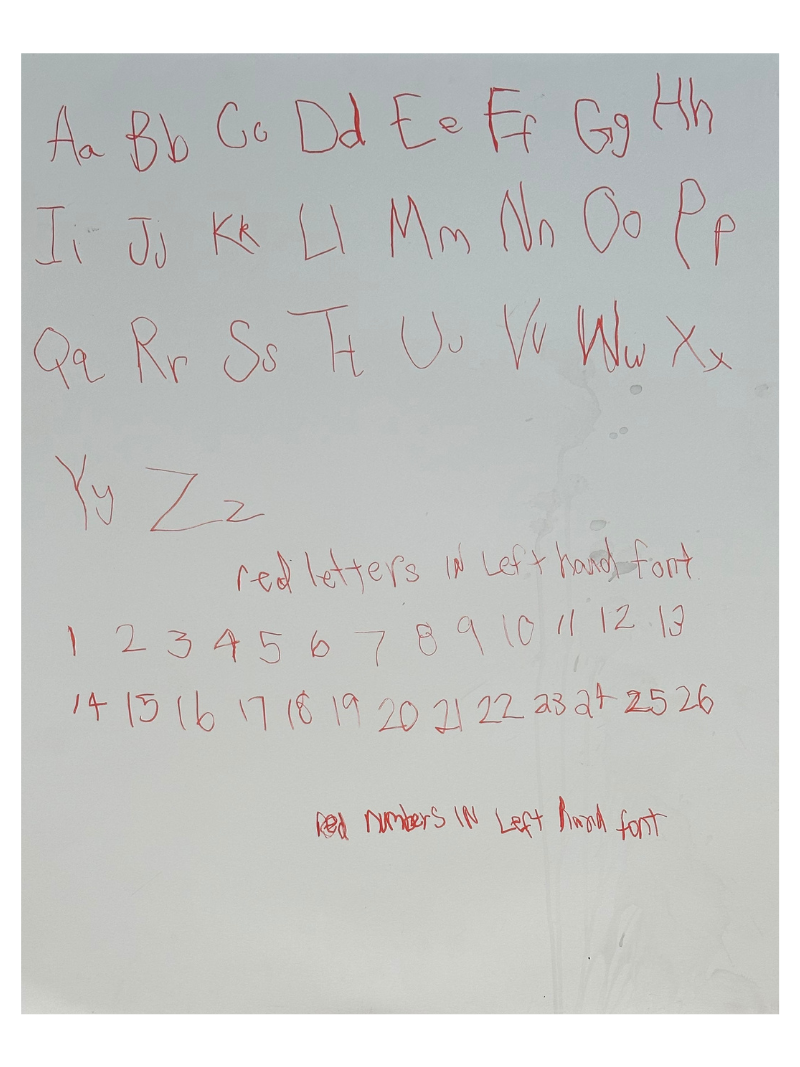 Aa Bb Cc Dd Ee Ff Gg Hh
Ii Jj Kk Ll Mm Nn Oo Pp
Qq Rr Ss Tt Uu Vv Ww Xx
Yy Zz
red letters IN Left hand font
1 2 3 4 5 6 7 8 9 10 11 12 13
14 15 16 17 18 19 20 21 22 23 24 25 26
Red numbers IN Left hand font